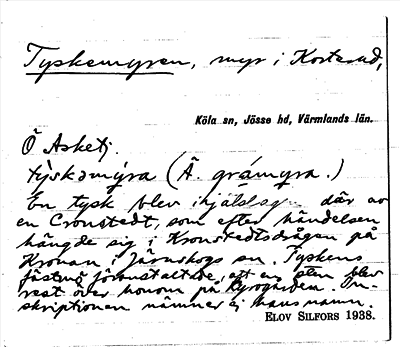 Tyskemyren, myr i Kosterud,
Köla sn, Jösse hd, Värmlands län.
Ö Asketj.
týskəmýra (Ä. grámyra.)
En tysk blev ihjälslagen där av
en Cronstedt, som efter händelsen
hängde sig i Kronstedtsdrågen på
Kronan i Järnskogs sn. Tyskens
fästmö föranstaltade, att en sten blev
rest över honom på kyrogården. In-
skriptionen nämner ej hans namn.
ELOV SILFORS 1938.